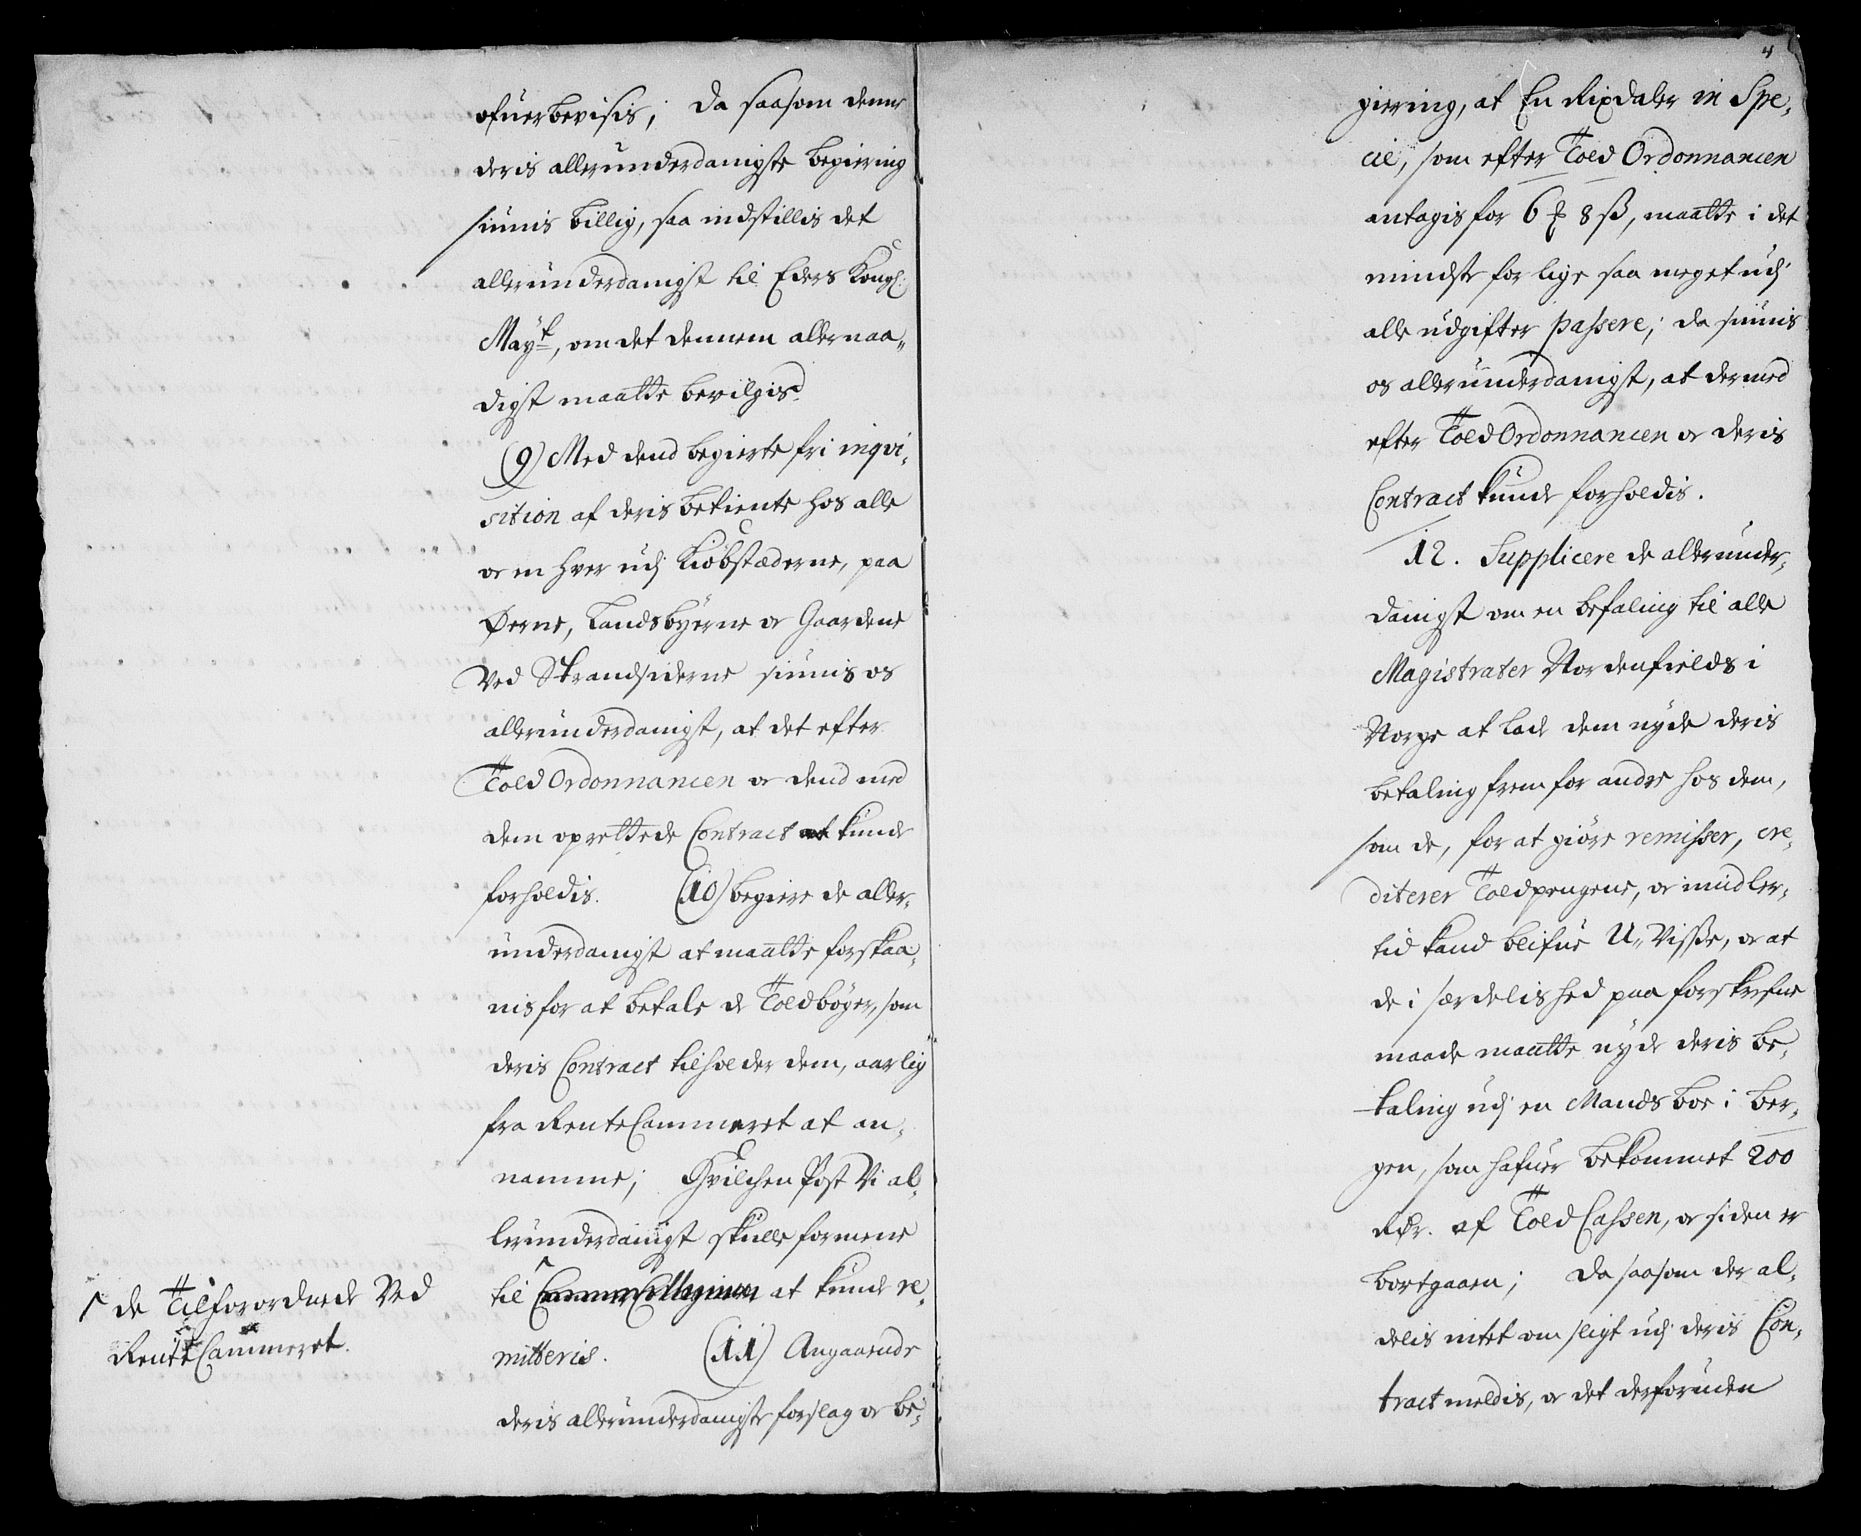 ofuerbevisis; Da saasom denne
deris allerunderdanigste begiering
siunis billig, saa indstillis det
allerunderdanigst til Eders Kongl:
Mayt, om det dennem allernaa„
digst maatte bevilgis.
(9) Med dend begierte fri inqvi„
sition af deris betiente hos alle
og en hver udj Kiøbstæderne, paa
Øerne, Landsbyerne og Gaardene
Ved Strandsiderne siunis os
allerunderdanigst, at det efter
Told Ordonnancen og dend med
dem oprettede Contract kunde
forholdis. (10) begiere de aller„
underdanigst at maatte forskaa„
nis for at betale de Toldbøger, som
deris Contract tilholder dem, aarlig
fra RenteCammeret at an„
namme; Hvilchen Post Vi al„
lerunderdanigst skulle formene
til CammerCollegium at kunde re„
mitteris. (11) Angaaende
deris allerunderdanigste forslag og be„
de Tilforordnede Ved
RenteCammeret.
4
giering, at En Rixdaler in Spe„
cie, som efter Told Ordonnancen
antagis for 6 ƒ 8 ß, maatte i det
mindste for lige saa meget udj
alle udgifter passere; da siunis
os allerunderdanigst, at dermed
efter Told Ordonnancen og deris
Contract kunde forholdis.
12. Supplicere de allerunder„
danigst om en befaling til alle
Magistrater Nordenfields i
Norge at lade dem nyde deris
betaling frem for andre hos dem,
som de, for at giøre remisser, cre„
diterer Toldpengene, og imidler„
tid kand blifue U„Visse, og at
de i særdelished paa forskrefne
maade maatte nyde deris be„
taling udj en Mands boe i Ber„
gen, som hafuer bekommet 200
Rdr. af Told Cassen, og siden er
bortgaaen; Da saasom der al„
delis intet om sligt udj deris Con„
tract meldis, og det derforuden